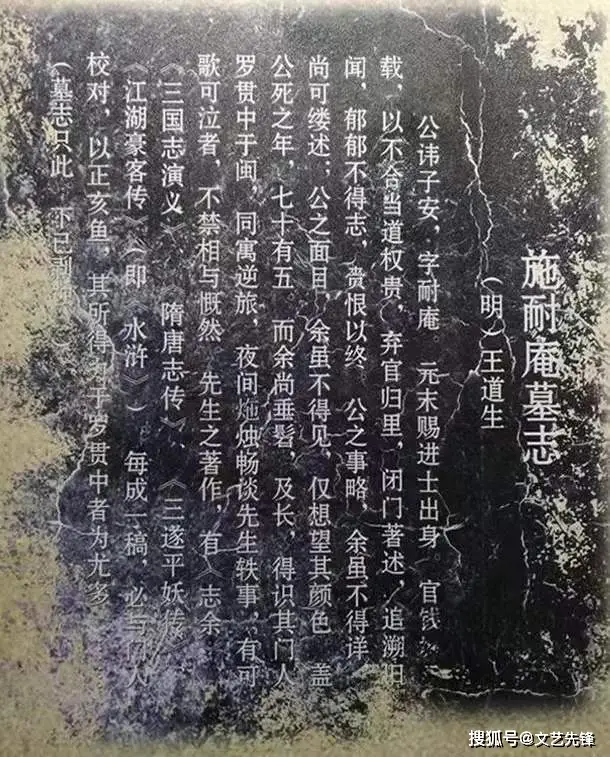 施耐庵墓志
（明）王道生
公讳子安，字耐庵。元末赐进士出身。官钱
载，以不合当道权贵，弃官归里，闭门著述，追溯旧
闻，郁郁不得志，赍恨以终。公之事略，余虽不得详，
尚可缕述；公之面目，余虽不得见，仅想望其颜色。盖
公死之年，七十有五。而余尚垂髫，及长，得识其门人
罗贯中于闽，同寓逆旅，夜间炧烛畅谈先生轶事，有可
歌可泣者，不禁相与慨然。先生之著作，有《志余
《三国志演义》、《隋唐志传》、《三遂平妖传
《江湖豪客传》（即《水浒》）。每成一稿，必与门人
校对，以正亥鱼，其所得力于罗贯中者为尤多
（墓志只此，下已
搜狐号@文艺先锋